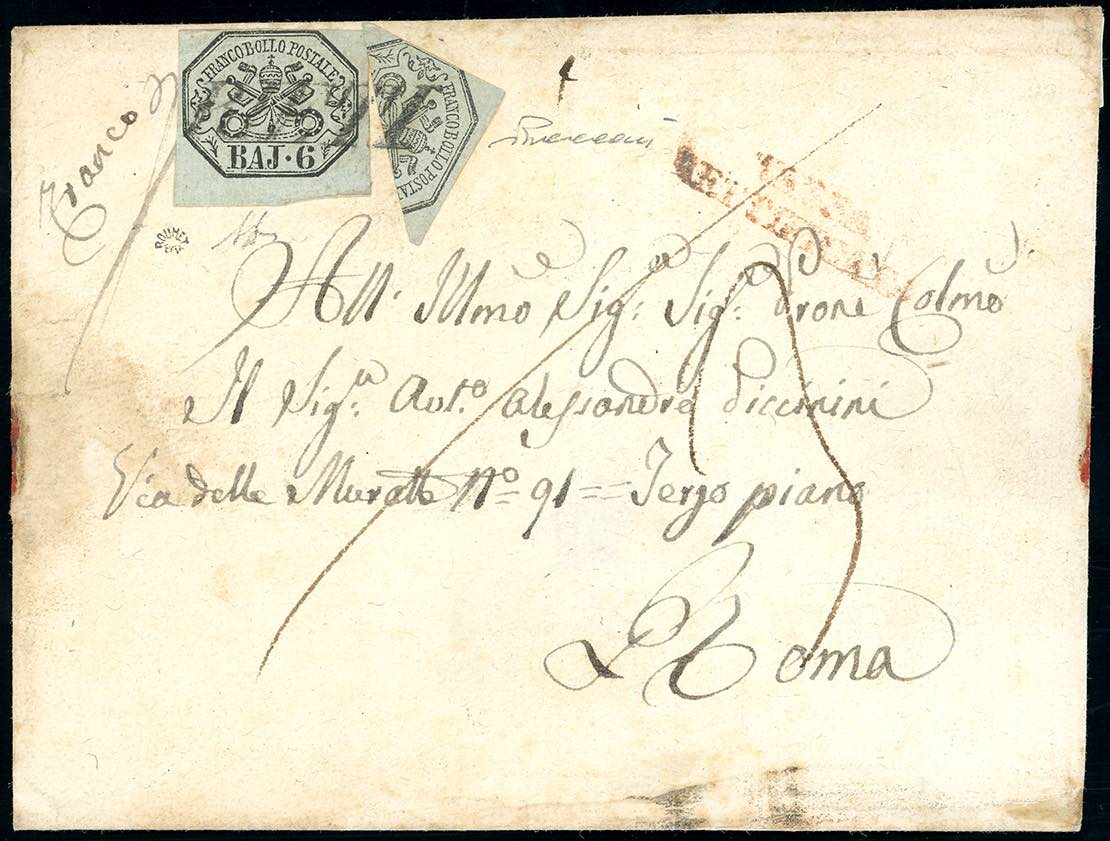 FRANCO BOLLO POSTALE
BAJ·6
FRANCO BOLLO POSTA
Franco
ROUMET
All' Illmo Sigr. Sigr. Prone Colmo
Il Sigr. Avto. Alessandro Piccinini
Via delle Muratte No. 91 = Terzo piano
Roma